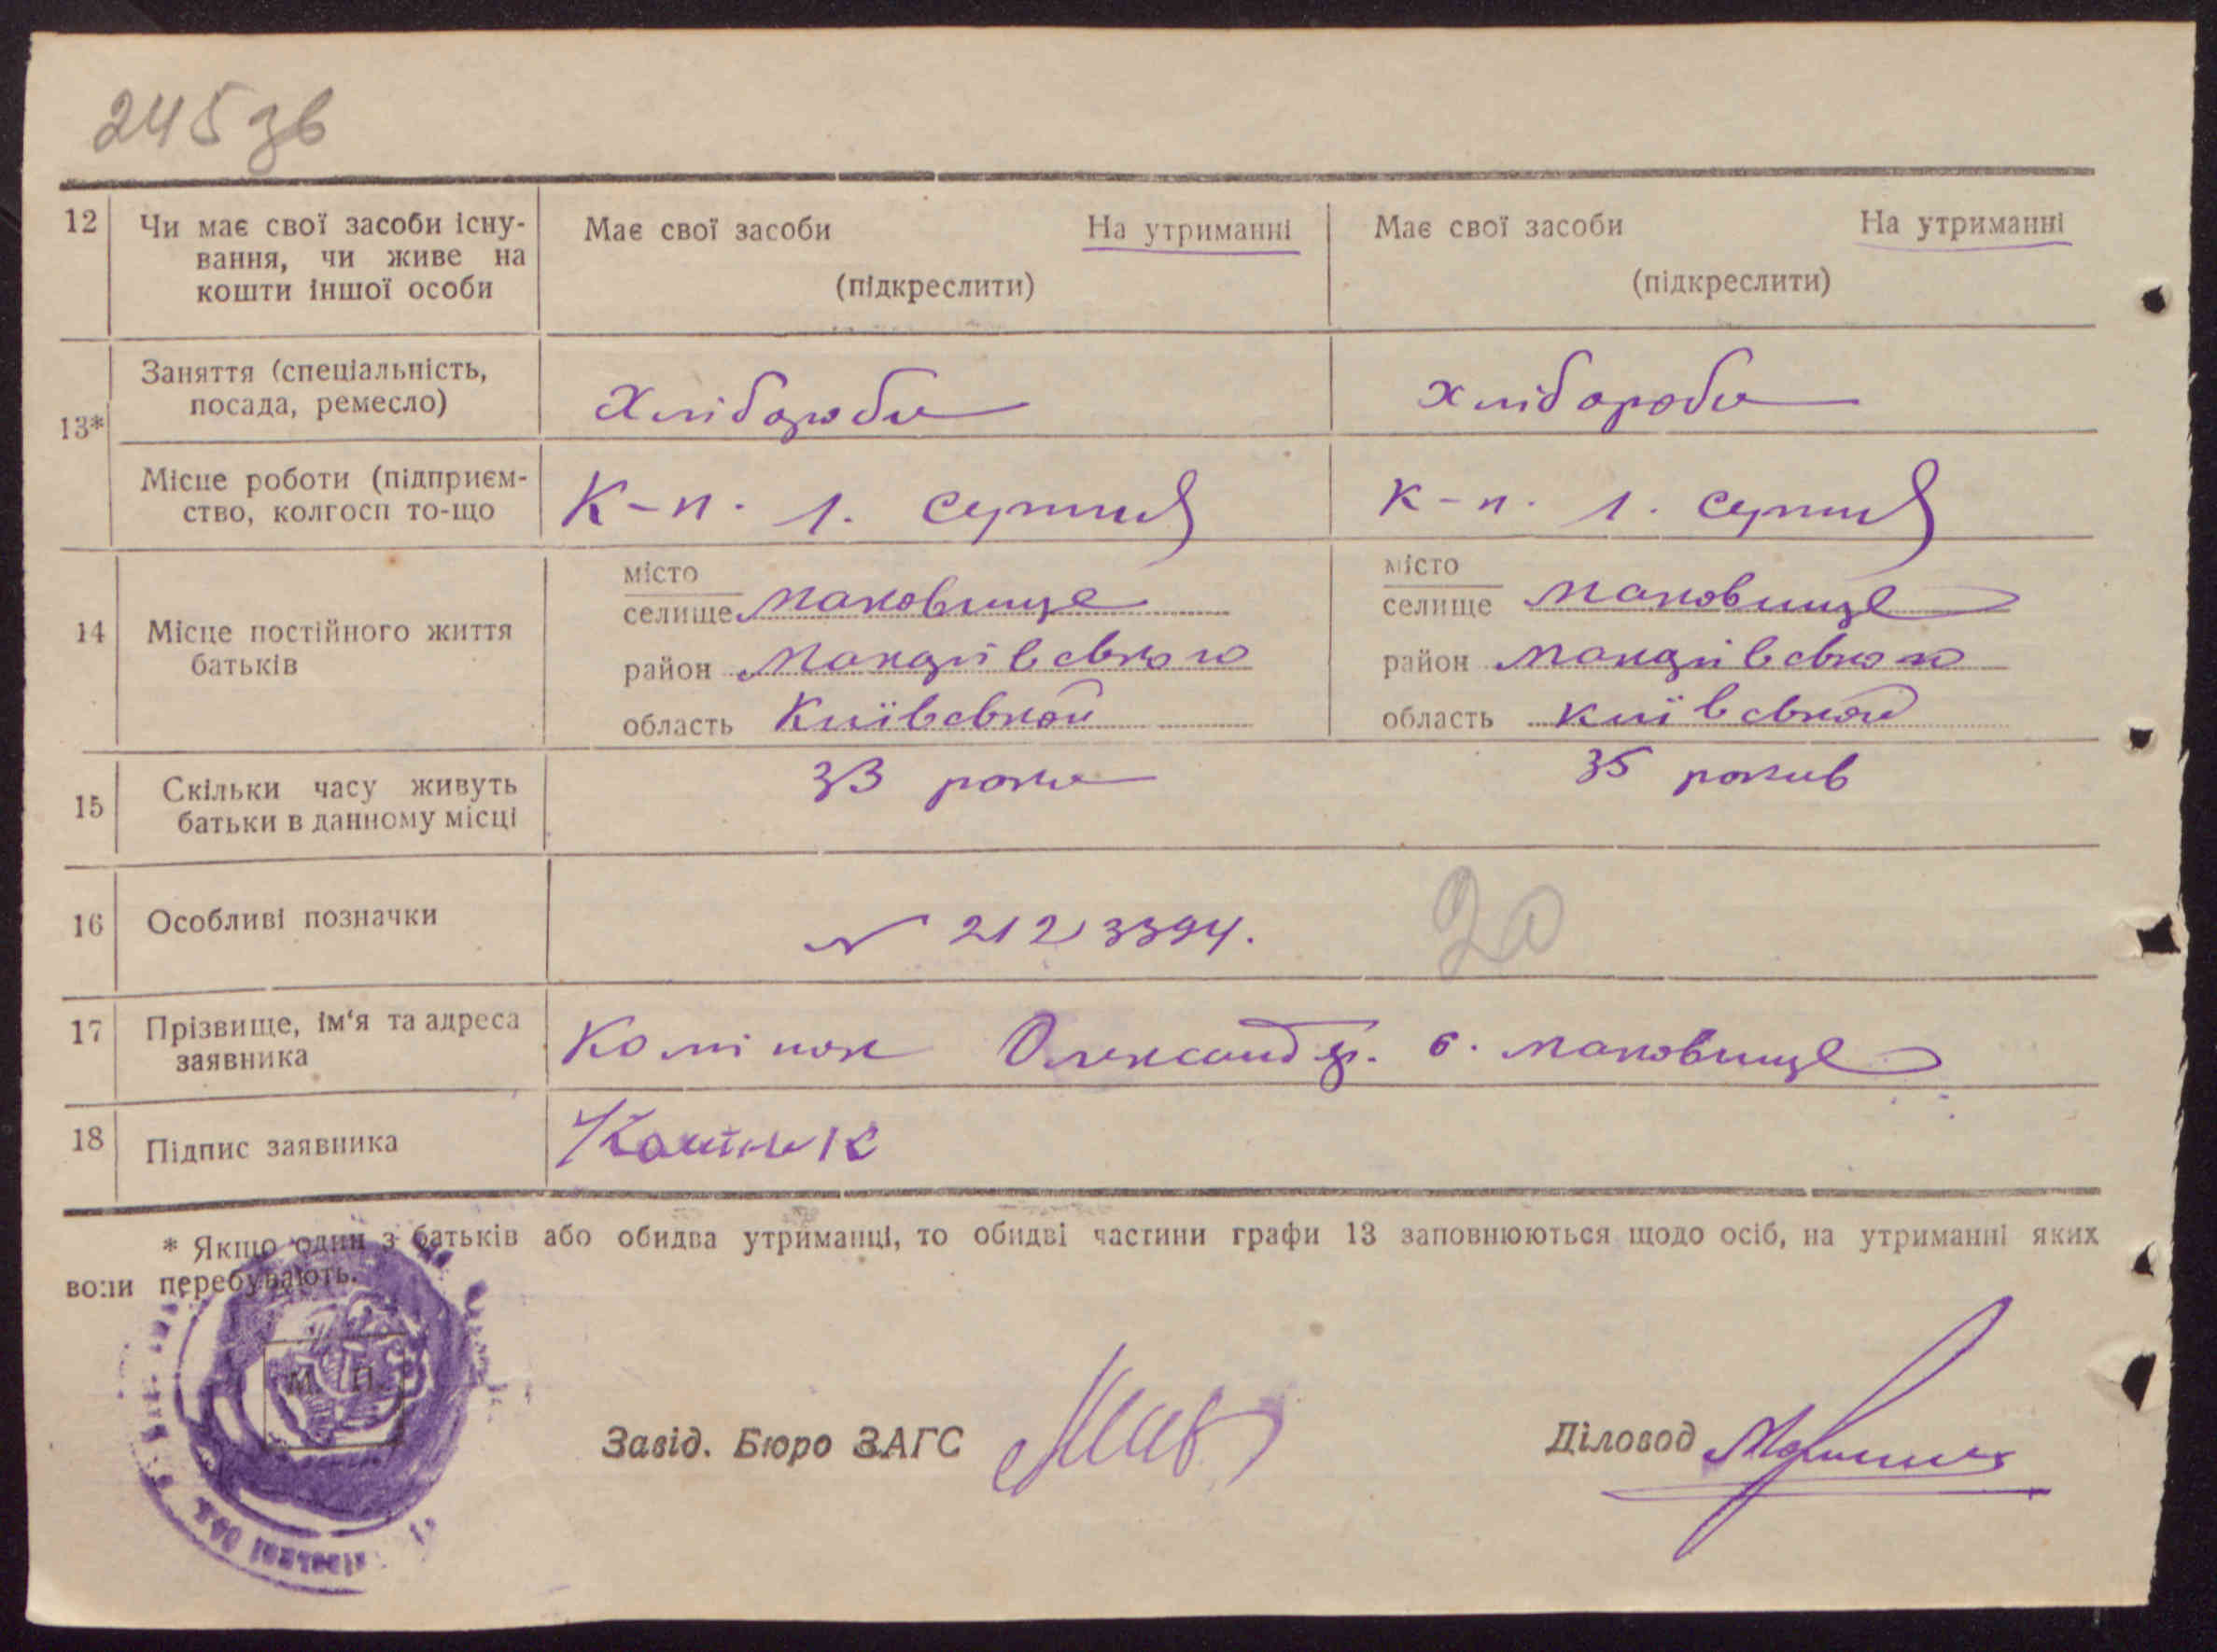 245 зв
12 Чи має свої засоби існу-
вання, чи живе на
кошти іншої особи
Має свої засоби На утриманні
(підкреслити)
Має свої засоби На утриманні
(підкреслити)
13*
Заняття (спеціальність,
посада, ремесло)
Хлібороби
хлібороби
Місце роботи (підприєм-
ство, колгосп то-що
К-п. 1. серпня
к-п. 1. серпня
14 Місце постійного життя
батьків
місто
селище маковище
район
область Київської
місто
селище маковище
район
область київської
15 Скільки часу живуть
батьки в данному місці
33 роки
35 років
16 Особливі позначки
N 2123394.
20
17 Прізвище, ім'я та адреса
заявника
Комінок Олександр. с. маковище
18 Підпис заявника
* Якщо один з батьків або обидва утриманці, то обидві частини графи 13 заповнюються щодо осіб, на утриманні яких
вони перебувають.
М. П.
Завід. Бюро ЗАГС
Діловод